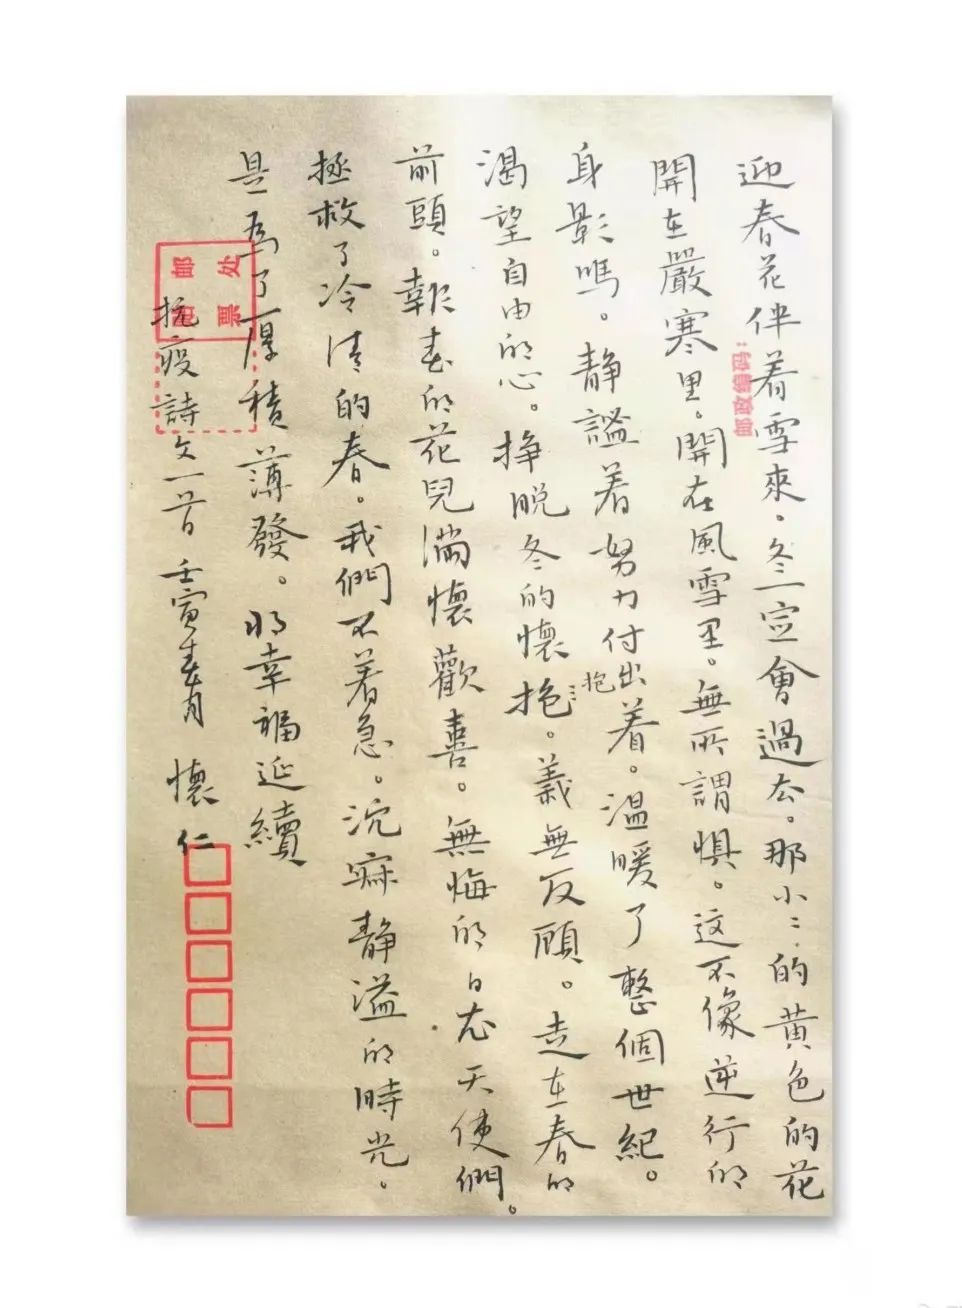 迎春花伴着雪來。冬一定會過去。那小︰的黃色的花
開在嚴寒里。開在風雪里。無所謂惧。这不像逆行的
身影嗎。静謐着努力付出着。温暖了整個世紀。
渴望自由的心。挣脱冬的懷抱。義無反顧。走在春的
抱
前頭。報春的花兒满懷歡喜。無悔的白衣天使們。
拯救了冷清的春。我們不着急。沉寂静溢的時光。
是為了厚積薄發。將幸福延續
抗疫詩文一首 壬寅春月 懷仁
邮政编码：
贴邮
票处